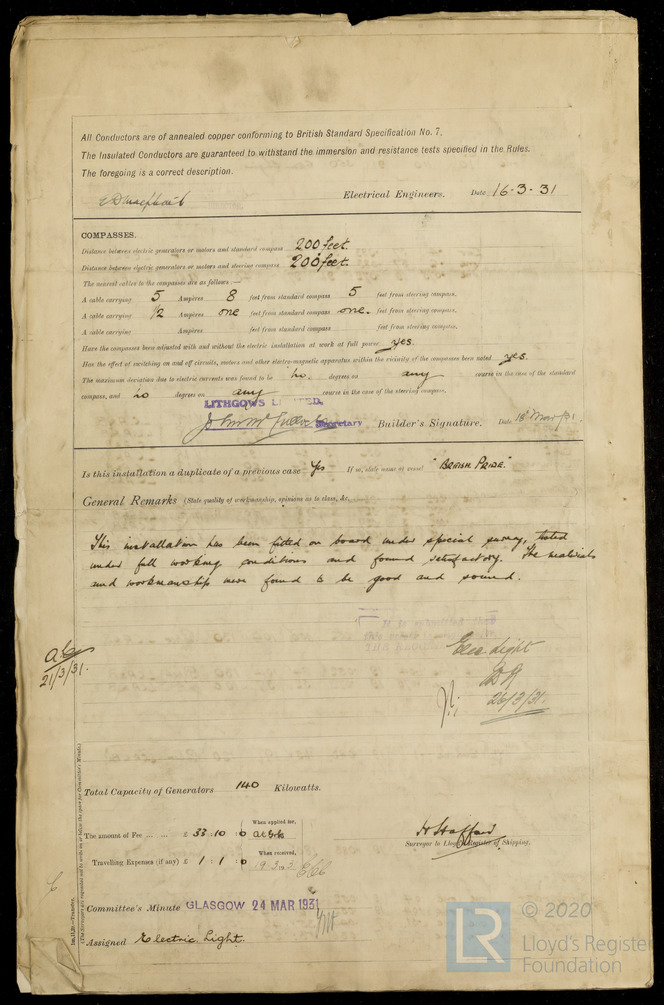 All Conductors are of annealed copper conforming to British Standard Specification No. 7.
The Insulated Conductors are guaranteed to withstand the immersion and resistance tests specified in the Rules.
The foregoing is a correct description.
Electrical Engineers. Date 16-3-31
COMPASSES.
Distance between electric generators or motors and standard compass 200 feet.
Distance between electric generators or motors and steering compass 200 feet.
The nearest cables to the compasses are as follows:—
A cable carrying 5 Ampères 8 feet from standard compass 5 feet from steering compass.
A cable carrying 1/2 Ampères one feet from standard compass one. feet from steering compass.
A cable carrying Ampères feet from standard compass feet from steering compass.
Have the compasses been adjusted with and without the electric installation at work at full power yes.
Has the effect of switching on and off circuits, motors and other electro-magnetic apparatus within the vicinity of the compasses been noted yes.
The maximum deviation due to electric currents was found to be no. degrees on any course in the case of the standard
compass, and no degrees on any course in the case of the steering compass.
LITHGOWS LIMITED.
Secretary Builder's Signature. Date 18 Mar/31
Is this installation a duplicate of a previous case Yes If so, state name of vessel "BRITISH PRIDE."
General Remarks (State quality of workmanship, opinions as to class, &c.
This installation has been fitted on board under special survey, tested
under full working conditions and found satisfactory. The materials
and workmanship were found to be good and sound.
21/3/31.
Elec Light
26/3/31.
Total Capacity of Generators 140 Kilowatts.
The amount of Fee ... ... £ 33 : 10 : 0
When applied for,
Travelling Expenses (if any) £ 1 : 1 : 0
When received,
Surveyor to Lloyd's Register of Shipping.
Committee's Minute GLASGOW 24 MAR 1931
Assigned Electric Light.
© 2020
LR
Lloyd's Register
Foundation